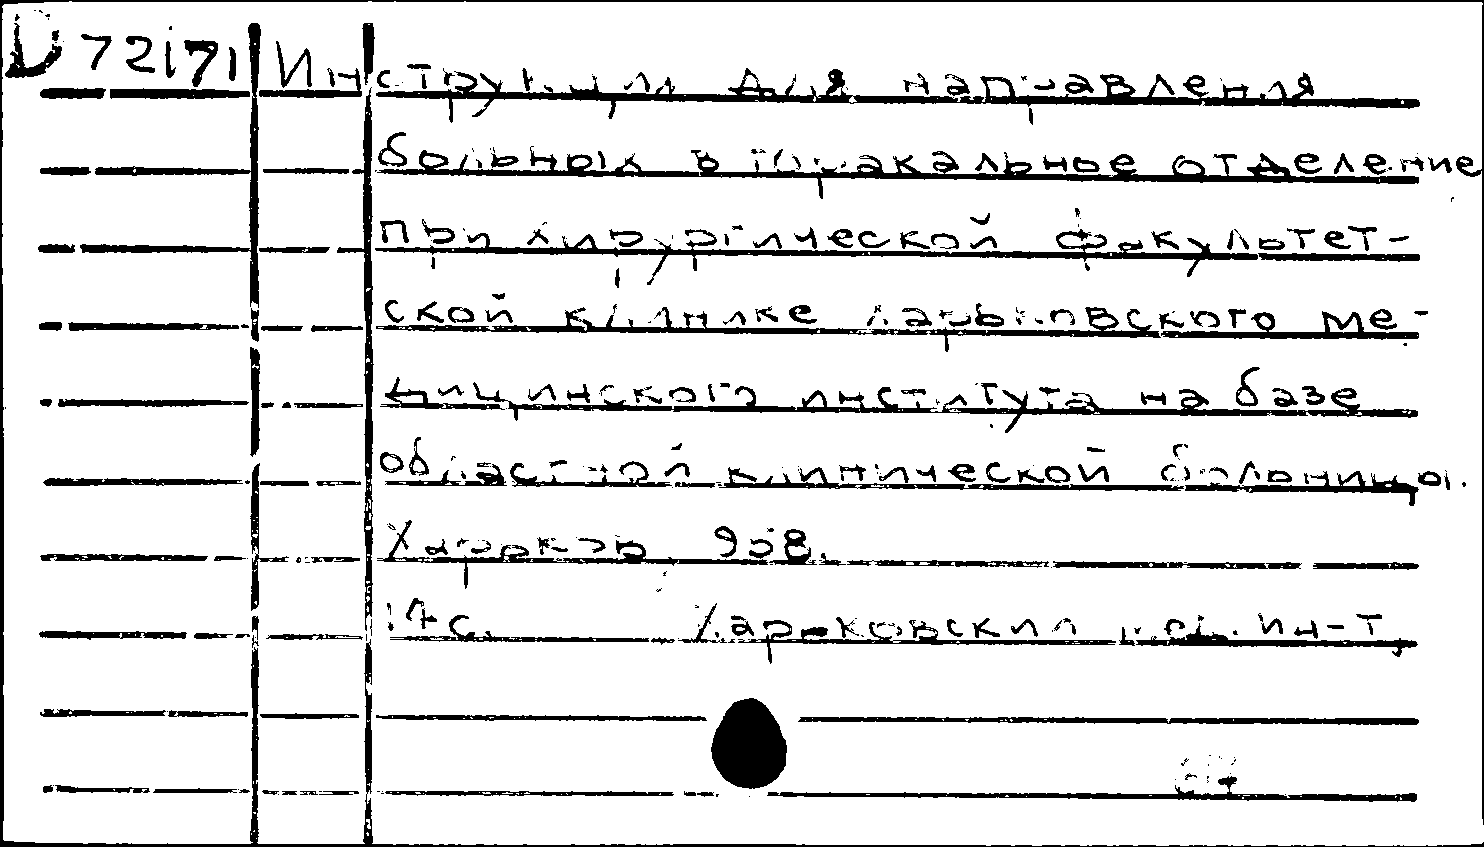 D 72171 Инструкция для направления
больных в торакальное отделение
при хирургической факультет-
ской клинике Харьковского ме-
дицинского института на базе
областной клинической больницы.
Харьков, 958.
17 с. Харьковский мед. ин-т,